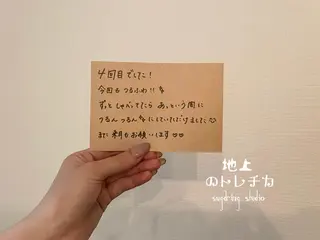 4回目でした!
今回もつるふわ!!
ずっとしゃべってたら あっという間に
つるんつるんにしていただけました♡
また来月もお願いします♡♡
地上
のトレチカ
sugar by studio